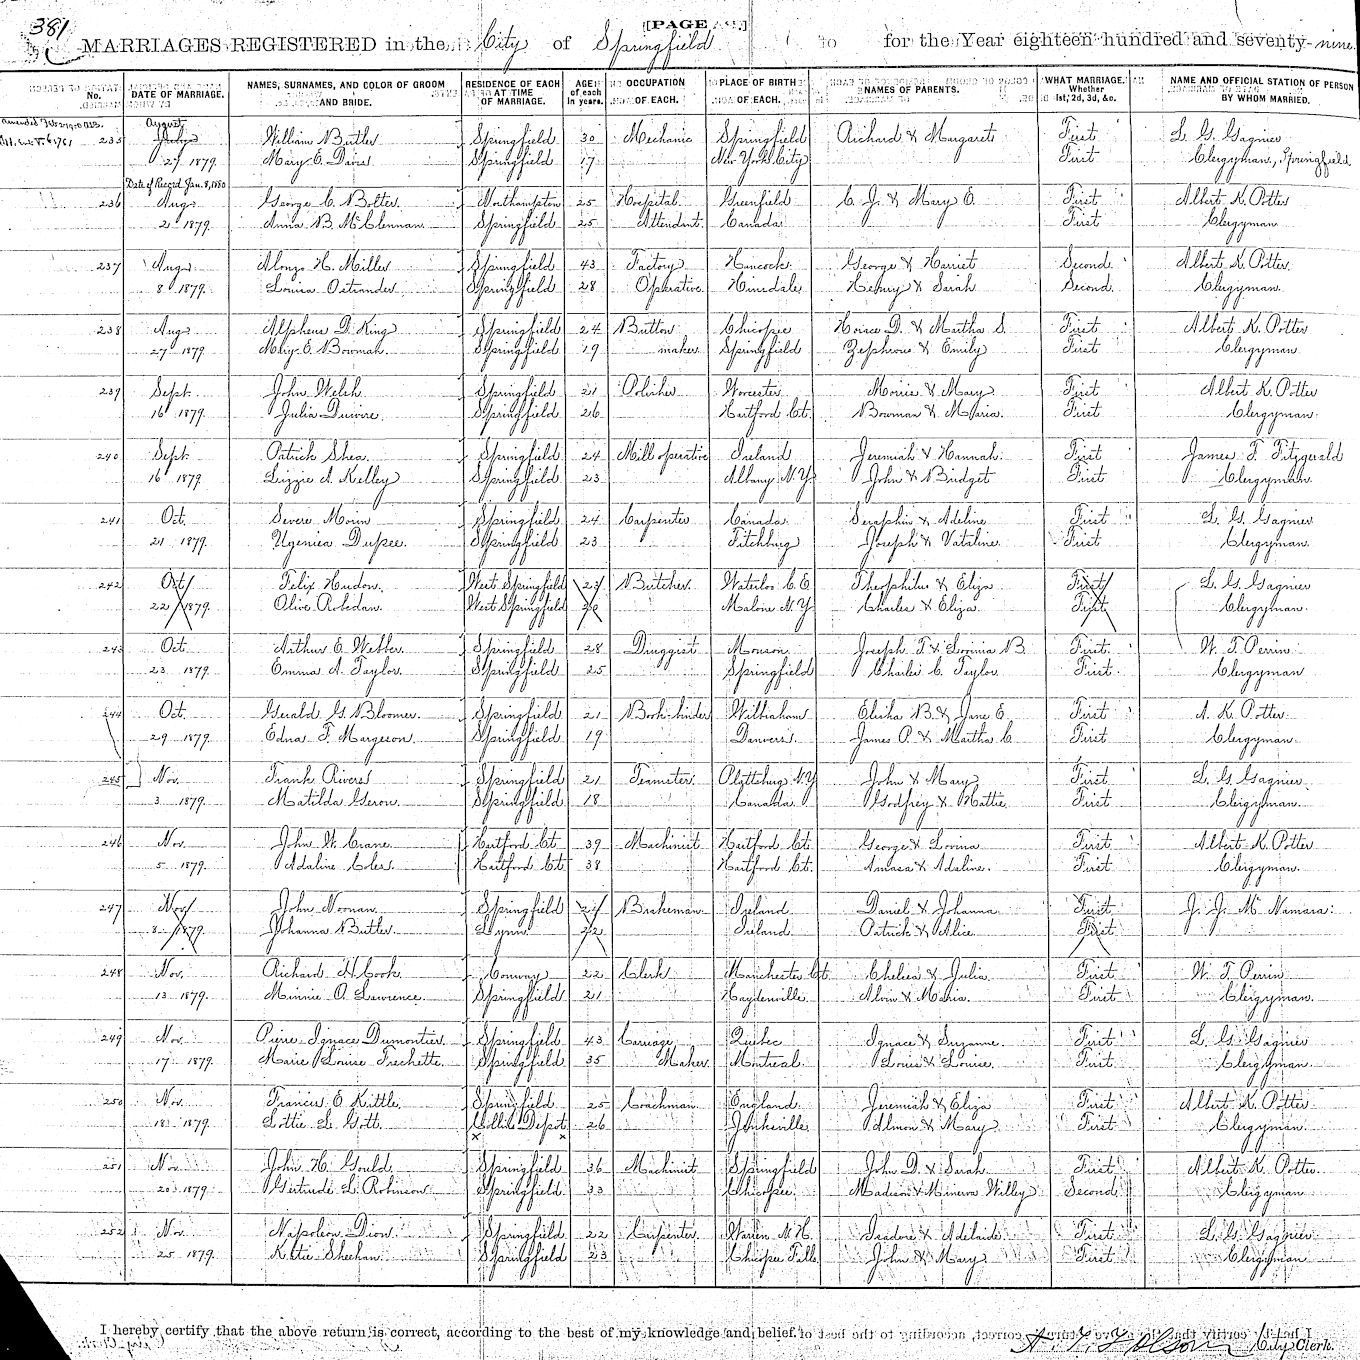 381
[PAGE ]
MARRIAGES REGISTERED in the City of Springfield for the Year eighteen hundred and seventy-nine.
No. DATE OF MARRIAGE. NAMES, SURNAMES, AND COLOR OF GROOM AND BRIDE. RESIDENCE OF EACH AT TIME OF MARRIAGE. AGE of each in years. OCCUPATION OF EACH. PLACE OF BIRTH OF EACH. NAMES OF PARENTS. WHAT MARRIAGE. Whether 1st, 2d, 3d, &c. NAME AND OFFICIAL STATION OF PERSON BY WHOM MARRIED.
August
235 July William Butler Springfield 30 Mechanic Springfield Richard & Margaret First L. G. Gagnier
27 1879 Mary E. Davis Springfield 17 New York City First Clergyman, Springfield
Date of Record Jan. 8, 1880
236 Aug George C. Bolter Northampton 25 Hospital Greenfield C. J. & Mary E. First Albert K. Potter
2 1879 Anna B. McClennan Springfield 25 Attendant Canada First Clergyman
237 Aug Alonzo H. Miller Springfield 43 Factory Hancock George & Harriet Second Albert K. Potter
8 1879 Louisa Ostrander Springfield 28 Operative Hinsdale Henry & Sarah Second Clergyman
238 Aug Alpheus D. King Springfield 24 Button Chicopee Horace D. & Martha S. First Albert K. Potter
27 1879 May E. Bowman Springfield 19 maker Springfield & Emily First Clergyman
239 Sept John Welsh Springfield 21 Polisher Worcester Morris & Mary First Albert K. Potter
16 1879 Julia Springfield 26 Hartford Ct. Bowman & Maria First Clergyman
240 Sept Patrick Shea Springfield 24 Mill operative Ireland Jeremiah & Hannah First James F. Fitzgerald
16 1879 Lizzie A. Kelley Springfield 23 Albany N.Y. John & Bridget First Clergyman
241 Oct Severe Morin Springfield 24 Carpenter Canada Seraphin & Adeline First L. G. Gagnier
21 1879 Ugenica Dupee Springfield 23 Fitchburg Joseph & Vataline First Clergyman
242 Oct Felix Hudon West Springfield 23 Butcher Waterloo C.E. Theophilus & Eliza First L. G. Gagnier
22 1879 Olive Robedaw West Springfield 20 Malone N.Y. Charles & Eliza First Clergyman
243 Oct Arthur E. Webber Springfield 28 Druggist Monson Joseph T. & Lovinia B. First W. T. Perrin
23 1879 Emma A. Taylor Springfield 25 Springfield Charles C. Taylor First Clergyman
244 Oct Gerald G. Bloomer Springfield 21 Book-binder Wilbraham Elisha B. & Jane E. First A. K. Potter
29 1879 Edna F. Margeson Springfield 19 Danvers James P. & Martha C. First Clergyman
245 Nov Frank Rivers Springfield 21 Teamster Plattsburg N.Y. John & Mary First L. G. Gagnier
3 1879 Matilda Geron Springfield 18 Canada Godfrey & Hattie First Clergyman
246 Nov John W. Crane Hartford Ct 39 Machinist Hartford Ct. George & Lovina First Albert K. Potter
5 1879 Adaline Coles Hartford Ct 38 Hartford Ct. Amasa & Adaline First Clergyman
247 Nov John Noonan Springfield Brakeman Ireland Daniel & Johanna First J. J. McNamara
8 1879 Johanna Butler Lynn 22 Ireland Patrick & Alice First
248 Nov Richard H. Cook Conway 22 Clerk Manchester Ct. Chelsea & Julia First W. T. Perrin
13 1879 Minnie O. Lawrence Springfield 21 Haydenville Alvin & Maria First Clergyman
249 Nov Pierre Ignace Dumontier Springfield 43 Carriage Quebec Ignace & Suzanne First L. G. Gagnier
17 1879 Marie Louise Frechette Springfield 35 Maker Montreal Louis & Louise First Clergyman
250 Nov Francis E. Kittle Springfield 25 Coachman England Jeremiah & Eliza First Albert K. Potter
18 1879 Lottie L. Gott Collins Depot 26 Jonksville Almon & Mary First Clergyman
x x
251 Nov John H. Gould Springfield 36 Machinist Springfield John D. & Sarah First Albert K. Potter
20 1879 Gertrude L. Robinson Springfield 33 Chicopee Madison & Minerva Willey Second Clergyman
252 Nov Napoleon Dion Springfield 22 Carpenter Warren N.H. Isadore & Adelaide First L. G. Gagnier
25 1879 Katie Sheehan Springfield 23 Chicopee Falls John & Mary First Clergyman
I hereby certify that the above return is correct, according to the best of my knowledge and belief.
A. T. Folsom City Clerk.